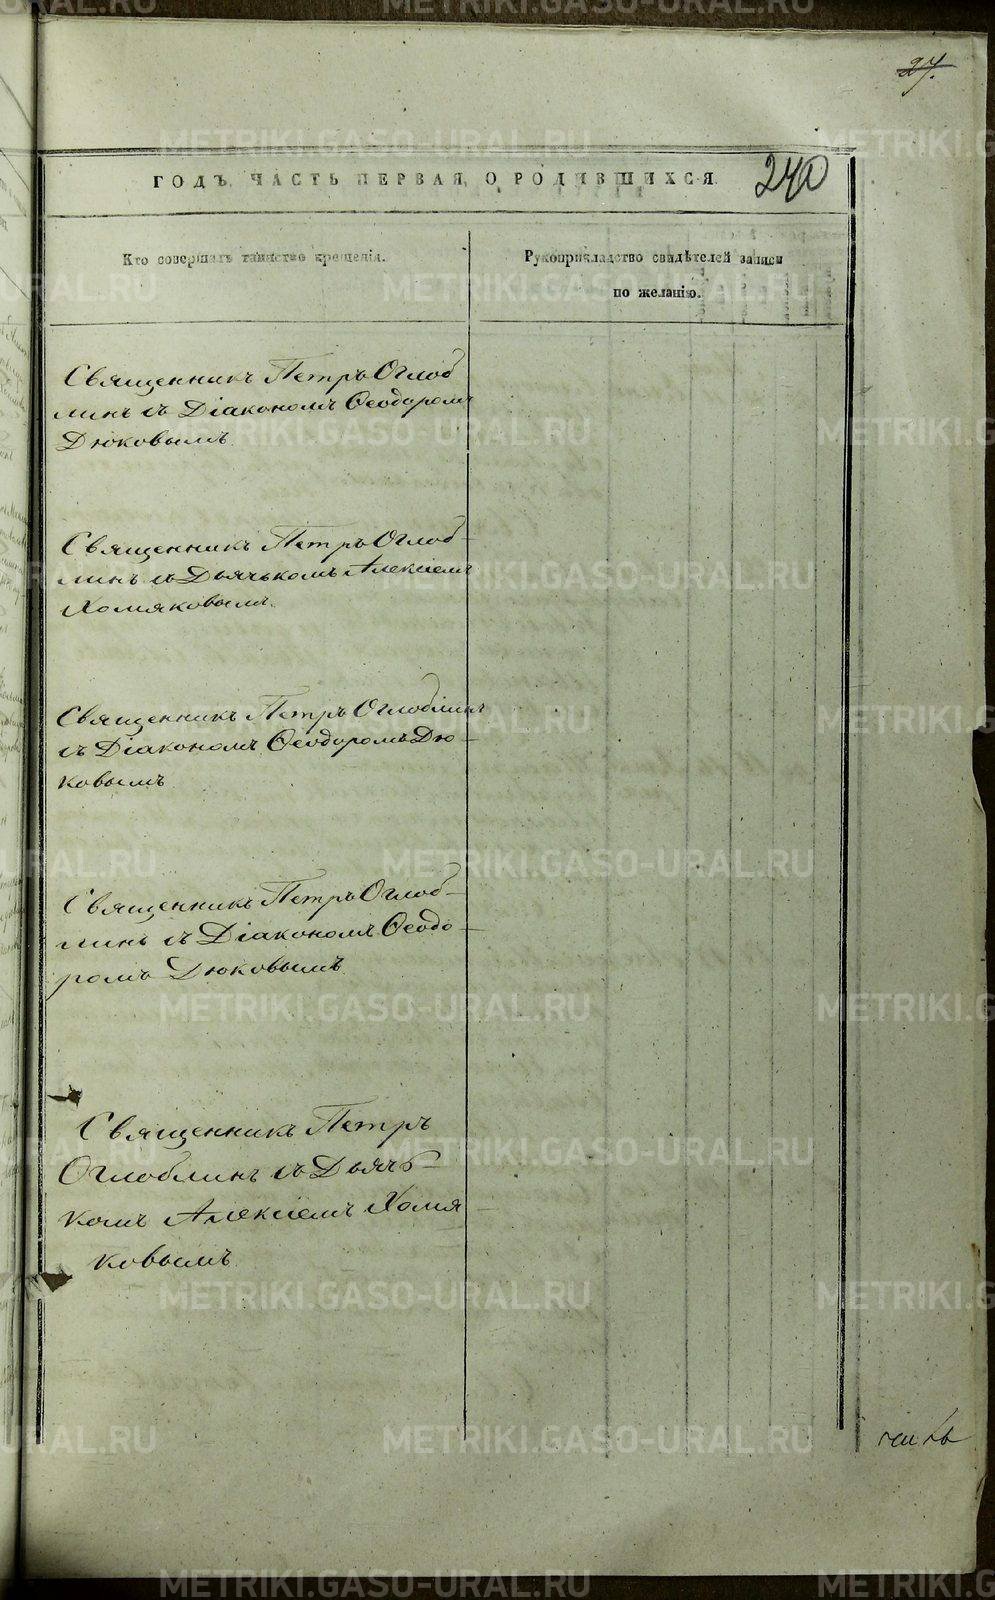 27.
ГОДЪ, ЧАСТЬ ПЕРВАЯ, О РОДИВШИХСЯ. 240
Кто совершалъ таинство крещенія.
Рукоприкладство свидѣтелей записи
по желанію.
Священникъ Петръ Оглоб
линъ съ Діакономъ Ѳеодоромъ
Дюковымъ
Священникъ Петръ Оглоб-
линъ съ Дьячькомъ Алексіемъ
Хомяковымъ.
Священникъ Петръ Оглоблинъ
съ Діакономъ Ѳеодоромъ Дю-
ковымъ
Священникъ Петръ Оглоб-
линъ съ Діакономъ Ѳеодо-
ромъ Дюковымъ
Священникъ Петръ
Оглоблинъ съ Дьячь-
комъ Алексіемъ Хомя-
ковымъ.
METRIKI.GASO-URAL.RU